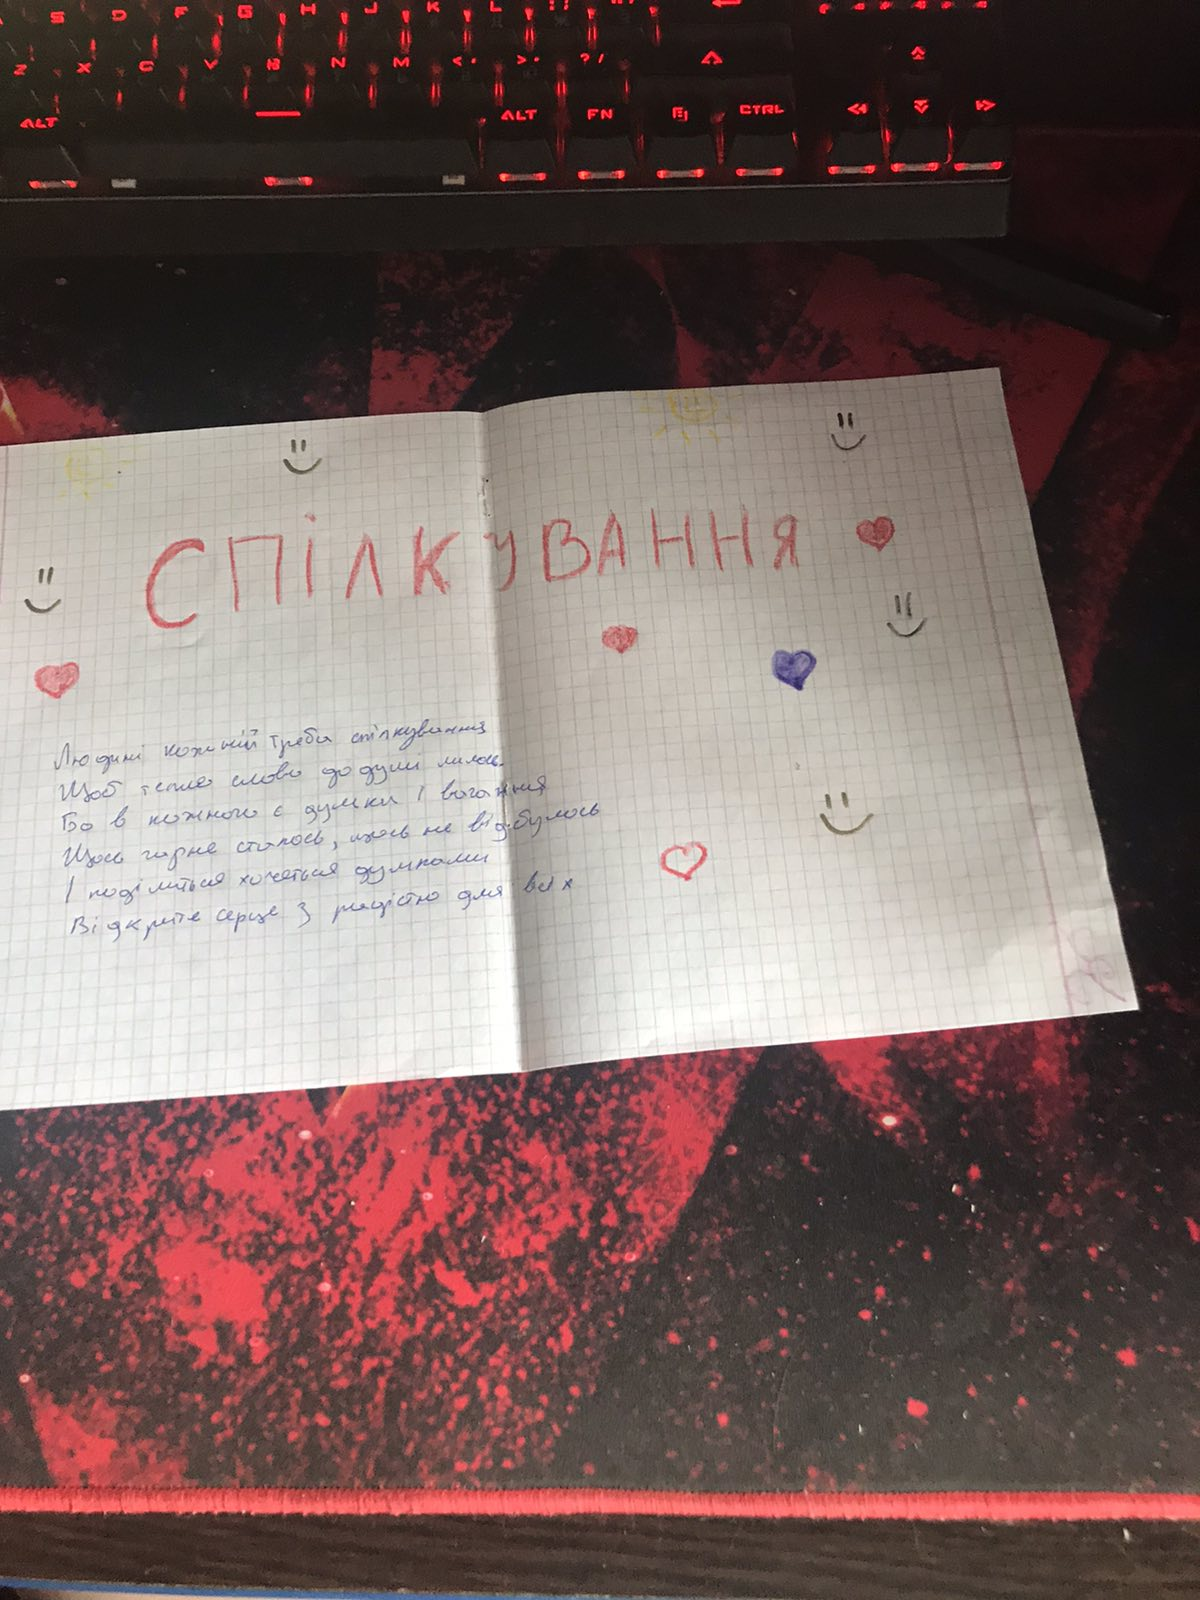 S D F G H J K L
Z X C V B N M < , > . ? /
ALT ALT FN CTRL
СПІЛКУВАННЯ
Людині кожній треба спілкування
Щоб тепле слово до душі лилось.
Бо в кожного є думки і вагання
Щось гарне сталось, щось не відбулось
І поділиться хочеться думками
Відкрите серце з радістю для всіх